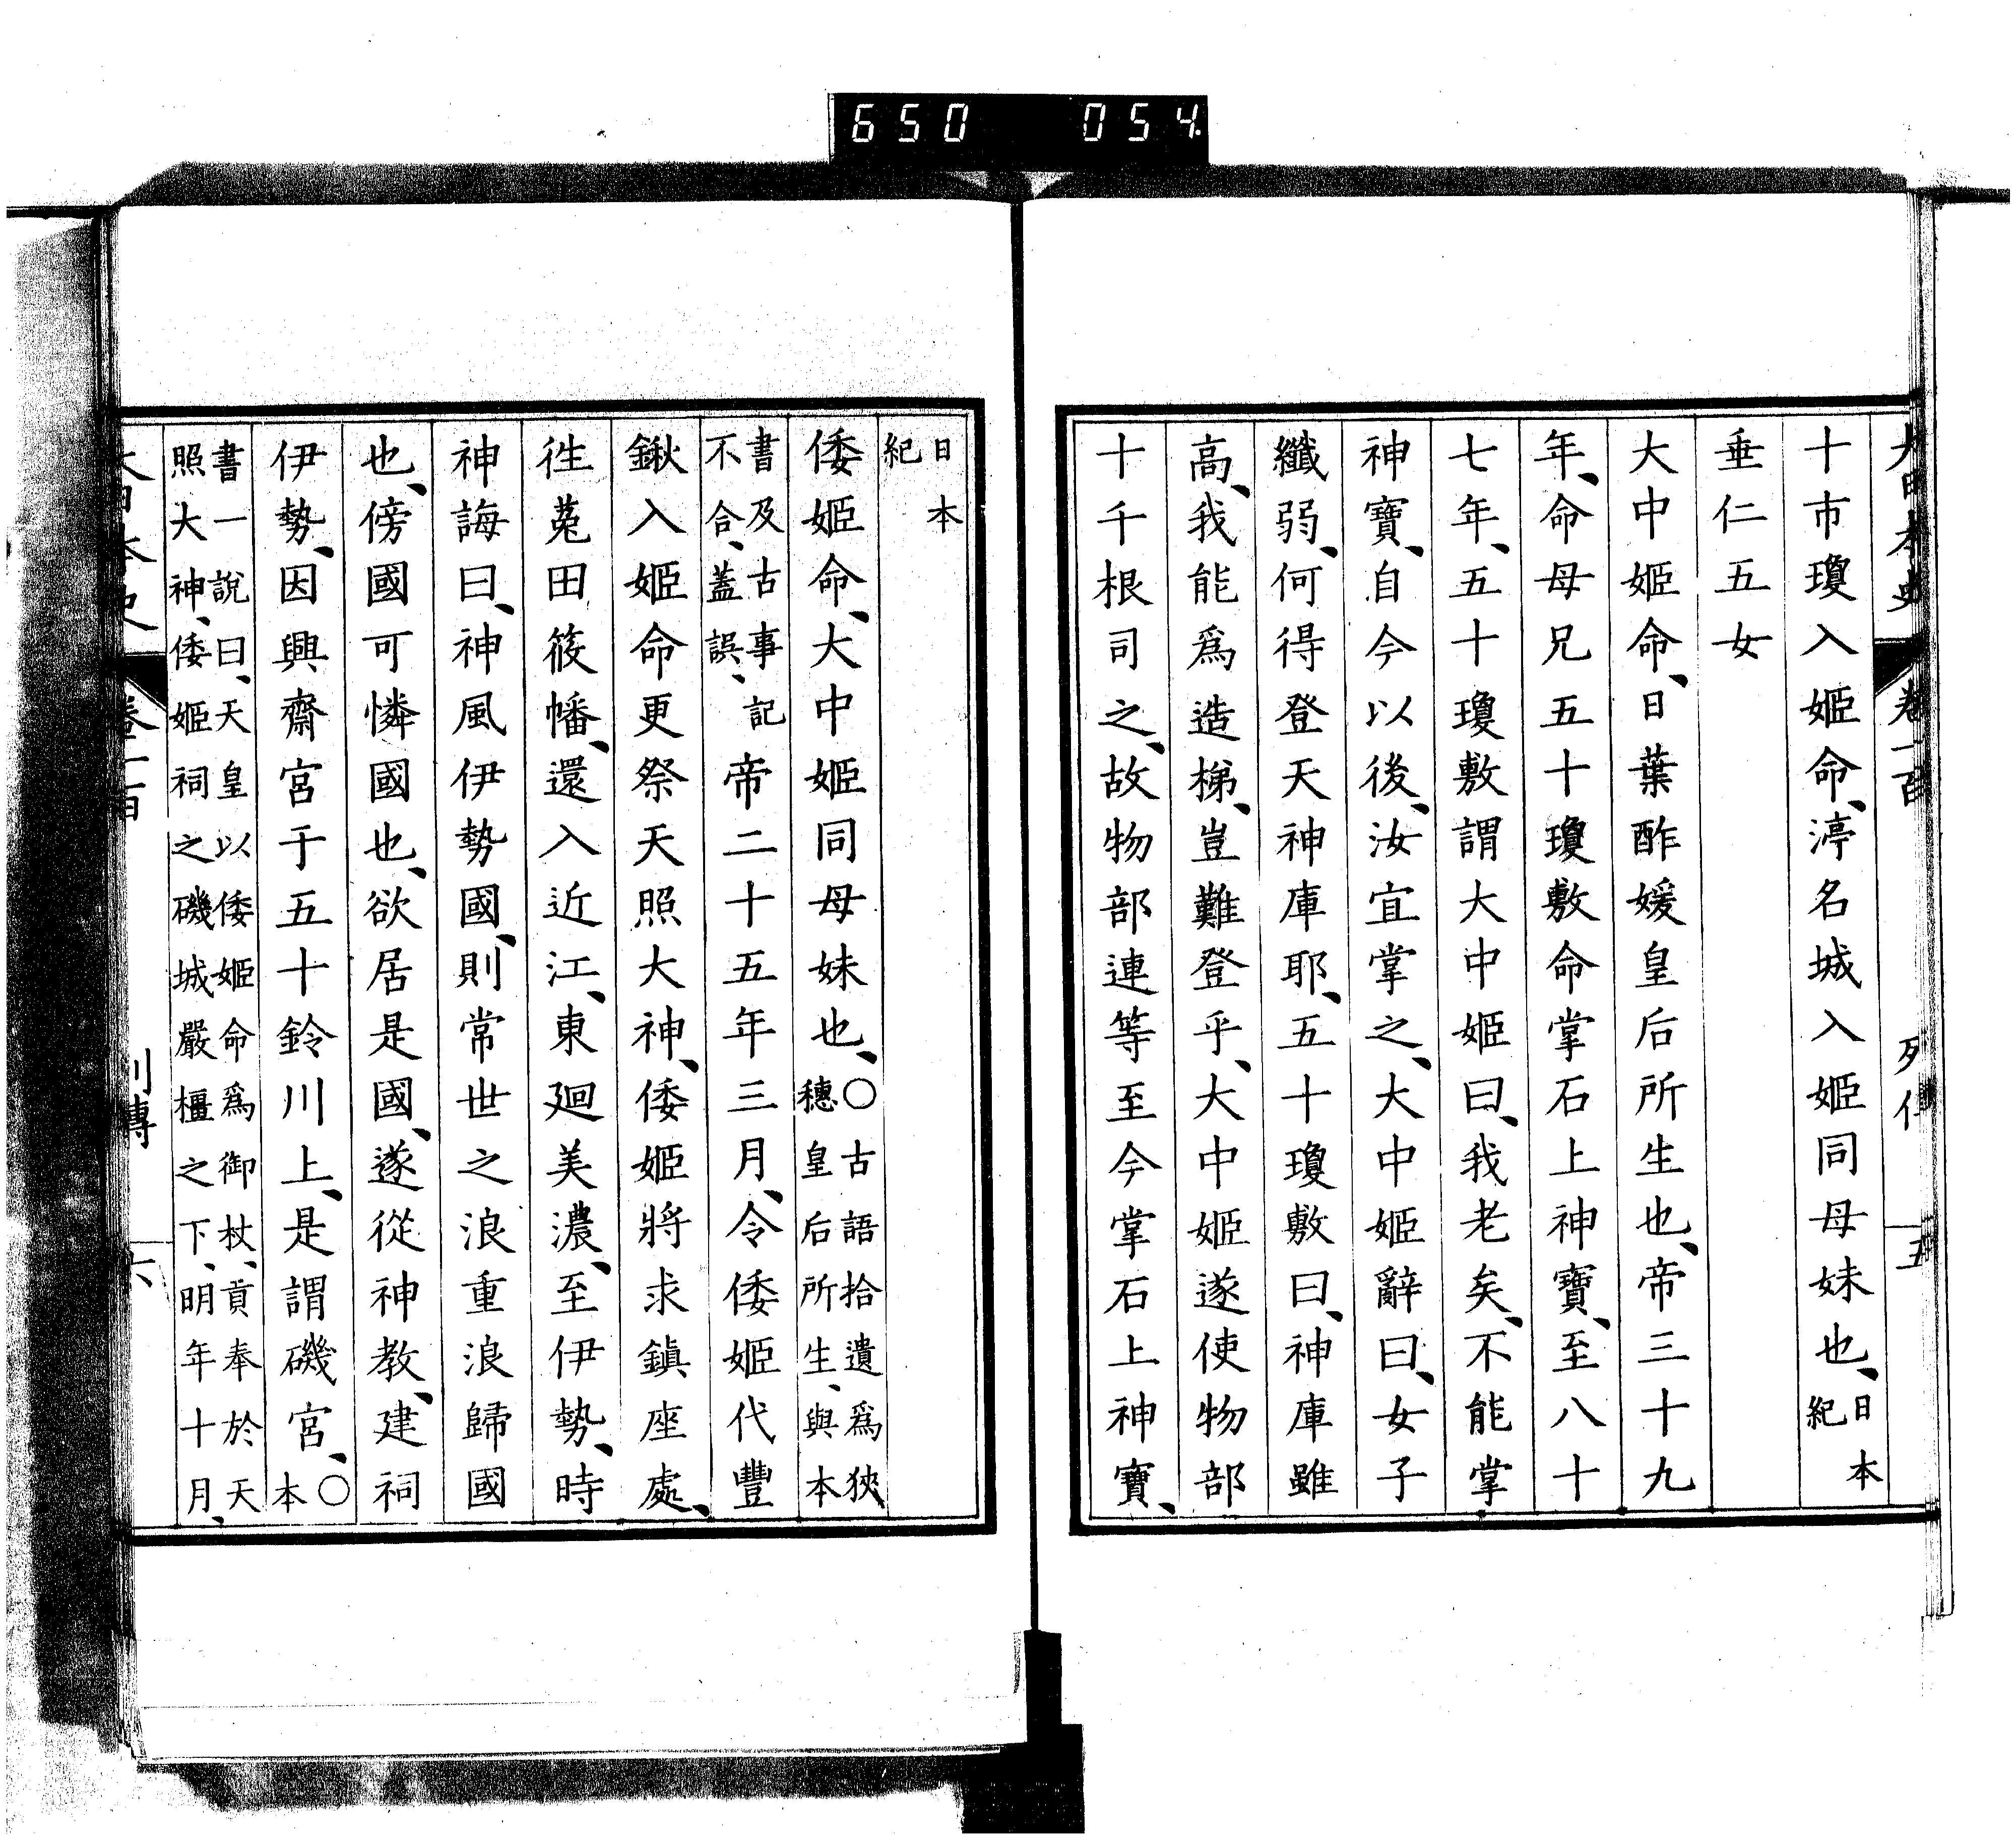 650 054
大日本史 卷一百 列傳 五
十市瓊入姬命、渟名城入姬同母妹也、日本紀
垂仁五女
大中姬命、日葉酢媛皇后所生也、帝三十九
年、命母兄五十瓊敷命掌石上神寶、至八十
七年、五十瓊敷謂大中姬曰、我老矣、不能掌
神寶、自今以後、汝宜掌之、大中姬辭曰、女子
纖弱、何得登天神庫耶、五十瓊敷曰、神庫雖
高、我能爲造梯、豈難登乎、大中姬遂使物部
十千根司之、故物部連等至今掌石上神寶、
日本紀
倭姬命、大中姬同母妹也、〇古語拾遺爲狹穗皇后所生、與本
書及古事記不合、蓋誤、帝二十五年三月、令倭姬代豐
鍬入姬命更祭天照大神、倭姬將求鎭座處、
徃菟田筱幡、還入近江、東廻美濃、至伊勢、時
神誨曰、神風伊勢國、則常世之浪重浪歸國
也、傍國可憐國也、欲居是國、遂從神教、建祠
伊勢、因興齋宮于五十鈴川上、是謂磯宮、〇本
書一說曰、天皇以倭姬命爲御杖、貢奉於天
照大神、倭姬祠之磯城嚴橿之下、明年十月、
大日本史 卷一百 列傳 六